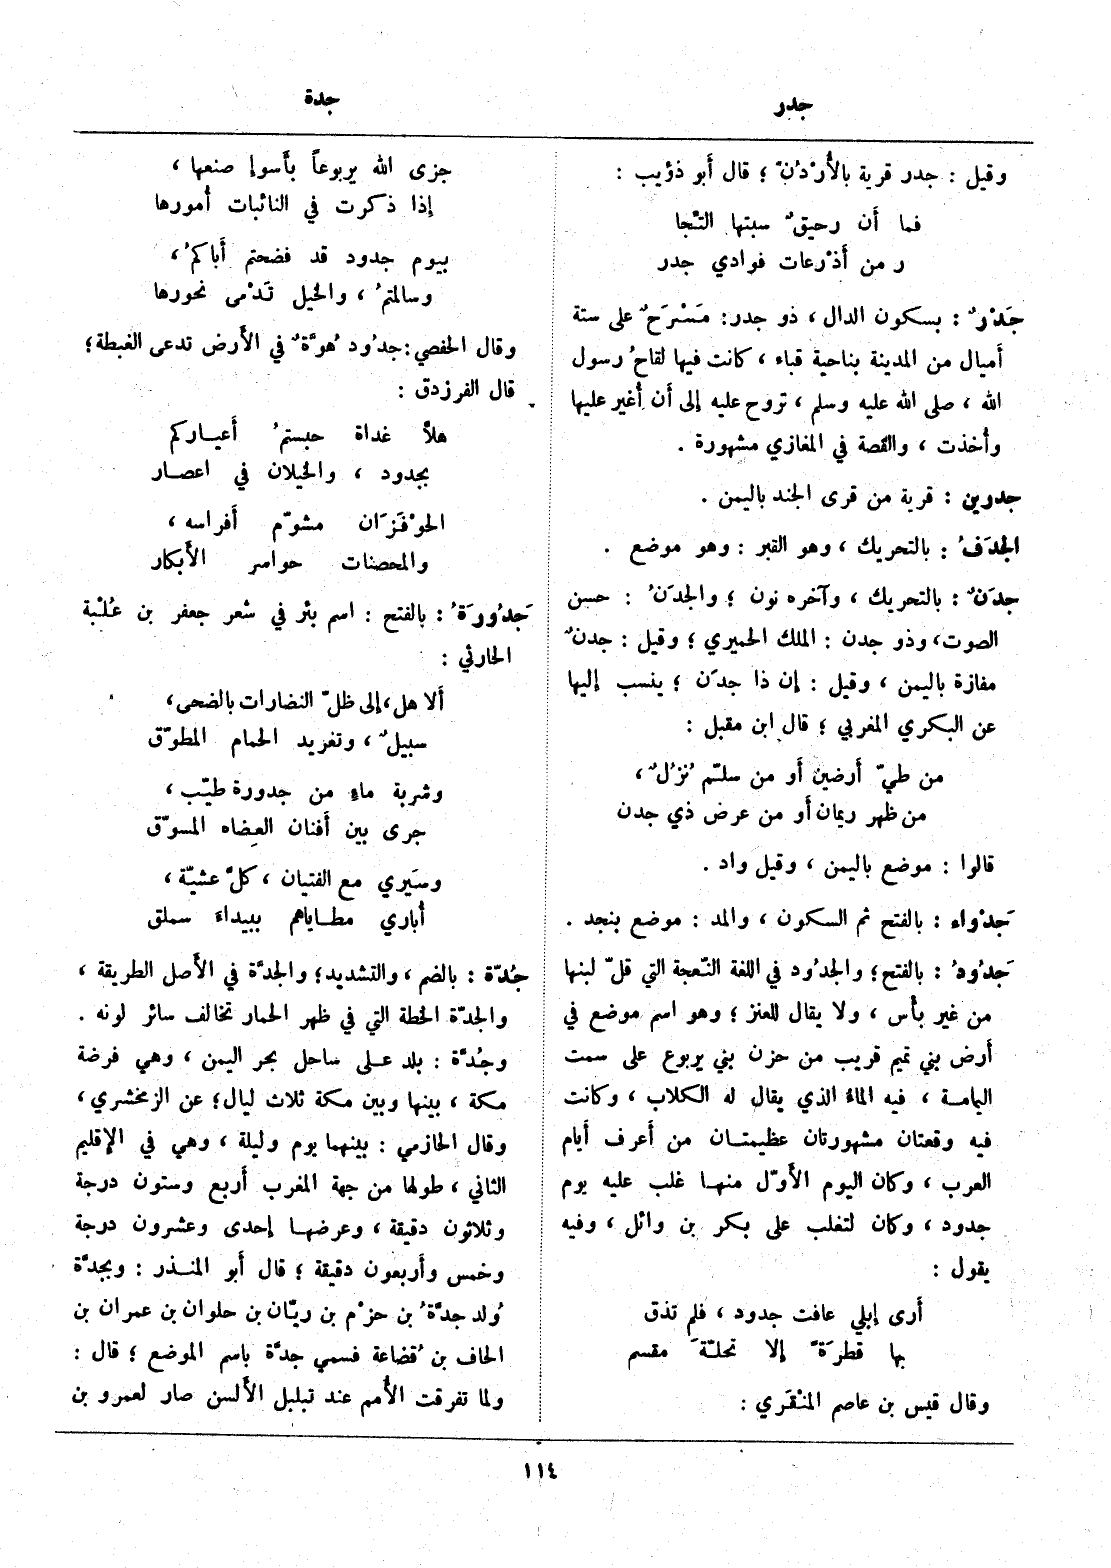 جدر
جدة
وقيل : جدر قرية بالأُرْدُنّ ؛ قال أبو ذؤيب :
فما أن رحيقٌ سبتها التّجا
ر من أذْرعات فوادي جدر
جَدْرٌ : بسكون الدال ، ذو جدر : مَسْرَحٌ على ستة
أميال من المدينة بناحية قباء ، كانت فيها لقاحُ رسول
الله ، صلى الله عليه وسلم ، تروح عليه إلى أن أُغير عليها
وأُخذت ، والقصة في المغازي مشهورة .
جدرين : قرية من قرى الجند باليمن .
الجدَفُ : بالتحريك ، وهو القبر : وهو موضع .
جدَنٌ : بالتحريك ، وآخره نون ؛ والجدَنُ : حسن
الصوت، وذو جدن : الملك الحميري ؛ وقيل : جدنٌ
مفازة باليمن ، وقيل : إن ذا جدَن ؛ ينسب إليها
عن البكري المغربي ؛ قال ابن مقبل :
من طيّ أرضين أو من سلّم نُزُلٌ ،
من ظهر ريمان أو من عرض ذي جدن
قالوا : موضع باليمن ، وقيل واد .
جَدْواء : بالفتح ثم السكون ، والمد : موضع بنجد .
جَدُودُ : بالفتح ؛ والجدُود في اللغة النّعجة التي قلّ لبنها
من غير بأس ، ولا يقال للعنز ؛ وهو اسم موضع في
أرض بني تميم قريب من حزن بني يربوع على سمت
اليامة ، فيه الماءُ الذي يقال له الكلاب ، وكانت
فيه وقعتان مشهورتان عظيمتان من أَعرف أيام
العرب ، وكان اليوم الأَوّل منها غلب عليه يوم
جدود ، وكان لتغلب على بكر بن وائل ، وفيه
يقول :
أرى إبلي عافت جدود ، فلم تذق
بها قطرَةً إلا تحلّةَ مقسم
وقال قيس بن عاصم المنْقَري :
جزى الله يربوعاً بأَسوإ صنعها ،
إذا ذكرت في النائبات أُمورها
بيوم جدود قد فضحتم أَباكمُ ،
وسالمتمُ ، والخيل تَدْمى نحورها
وقال الحفصي : جدُود هُوَّةٌ في الأَرض تدعى الغبطة ؛
قال الفرزدق :
هلاَّ غداة حبستمُ أَعياركم
بجدود ، والخيلان في اعصار
الحوْفَزَان مشوّم أَفراسه ،
والمحصنات حواسر الأَبكار
جَدُورَةُ : بالفتح : اسم بئر في شعر جعفر بن عُلْبة
الحارثي :
ألا هل، إلى ظلّ النضارات بالضحى،
سبيلٌ ، وتغريد الحمام المطوّق
وشربة ماءٍ من جدورة طيّب ،
جرى بين أَفنان العضاه المسوّق
وسَيري مع الفتيان ، كلَّ عشيّة ،
أُباري مطاياهم ببيداءَ سملق
جُدّة : بالضم ، والتشديد ؛ والجدَّة في الأَصل الطريقة ،
والجدّة الخطة التي في ظهر الحمار تخالف سائر لونه .
وجُدَّة : بلد على ساحل بحر اليمن ، وهي فرضة
مكة ، بينها وبين مكة ثلاث ليال ؛ عن الزمخشري ،
وقال الحازمي : بينهما يوم وليلة ، وهي في الإقليم
الثاني ، طولها من جهة المغرب أربع وستون درجة
وثلاثون دقيقة ، وعرضها إحدى وعشرون درجة
وخمس وأربعون دقيقة ؛ قال أبو المنذر : وبجدَّة
وُلد جدَّةُ بن حزْم بن ريّان بن حلوان بن عمران بن
الحاف بن قُضاعة فسمي جدَّة باسم الموضع ؛ قال :
ولما تفرقت الأُمم عند تبلبل الأَلسن صار لعمرو بن
١١٤